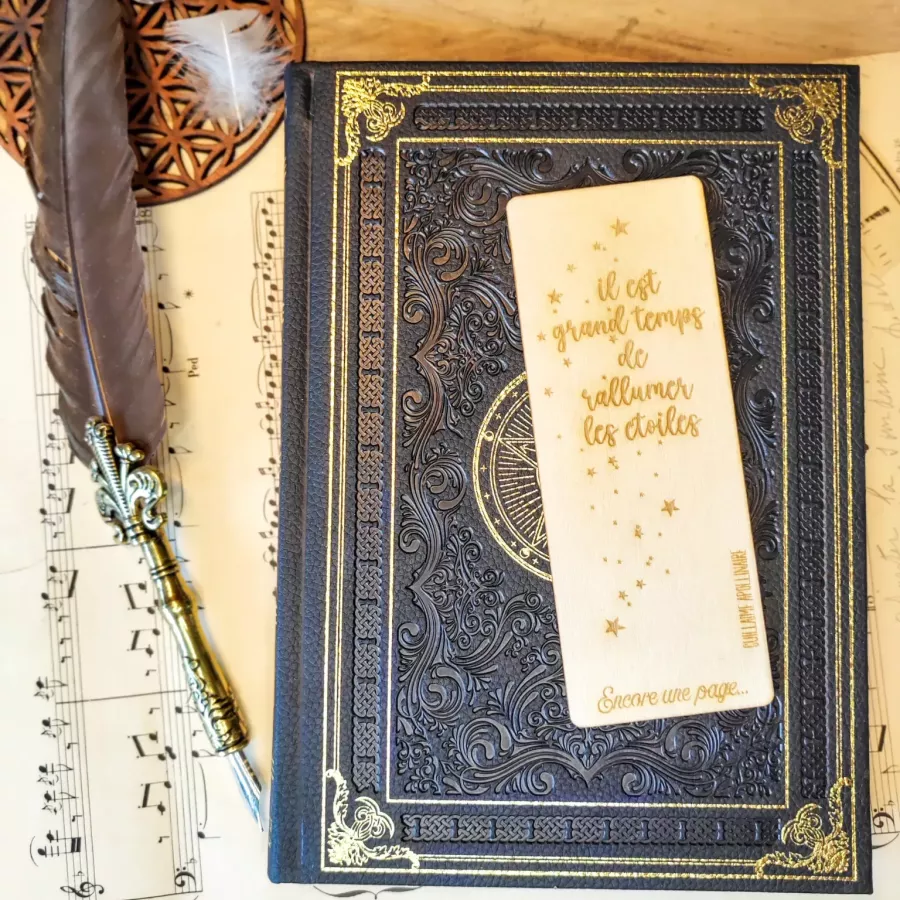 il est
grand temps
de
rallumer
les etoiles
GUILLAUME APOLLINAIRE
Encore une page...
Ped